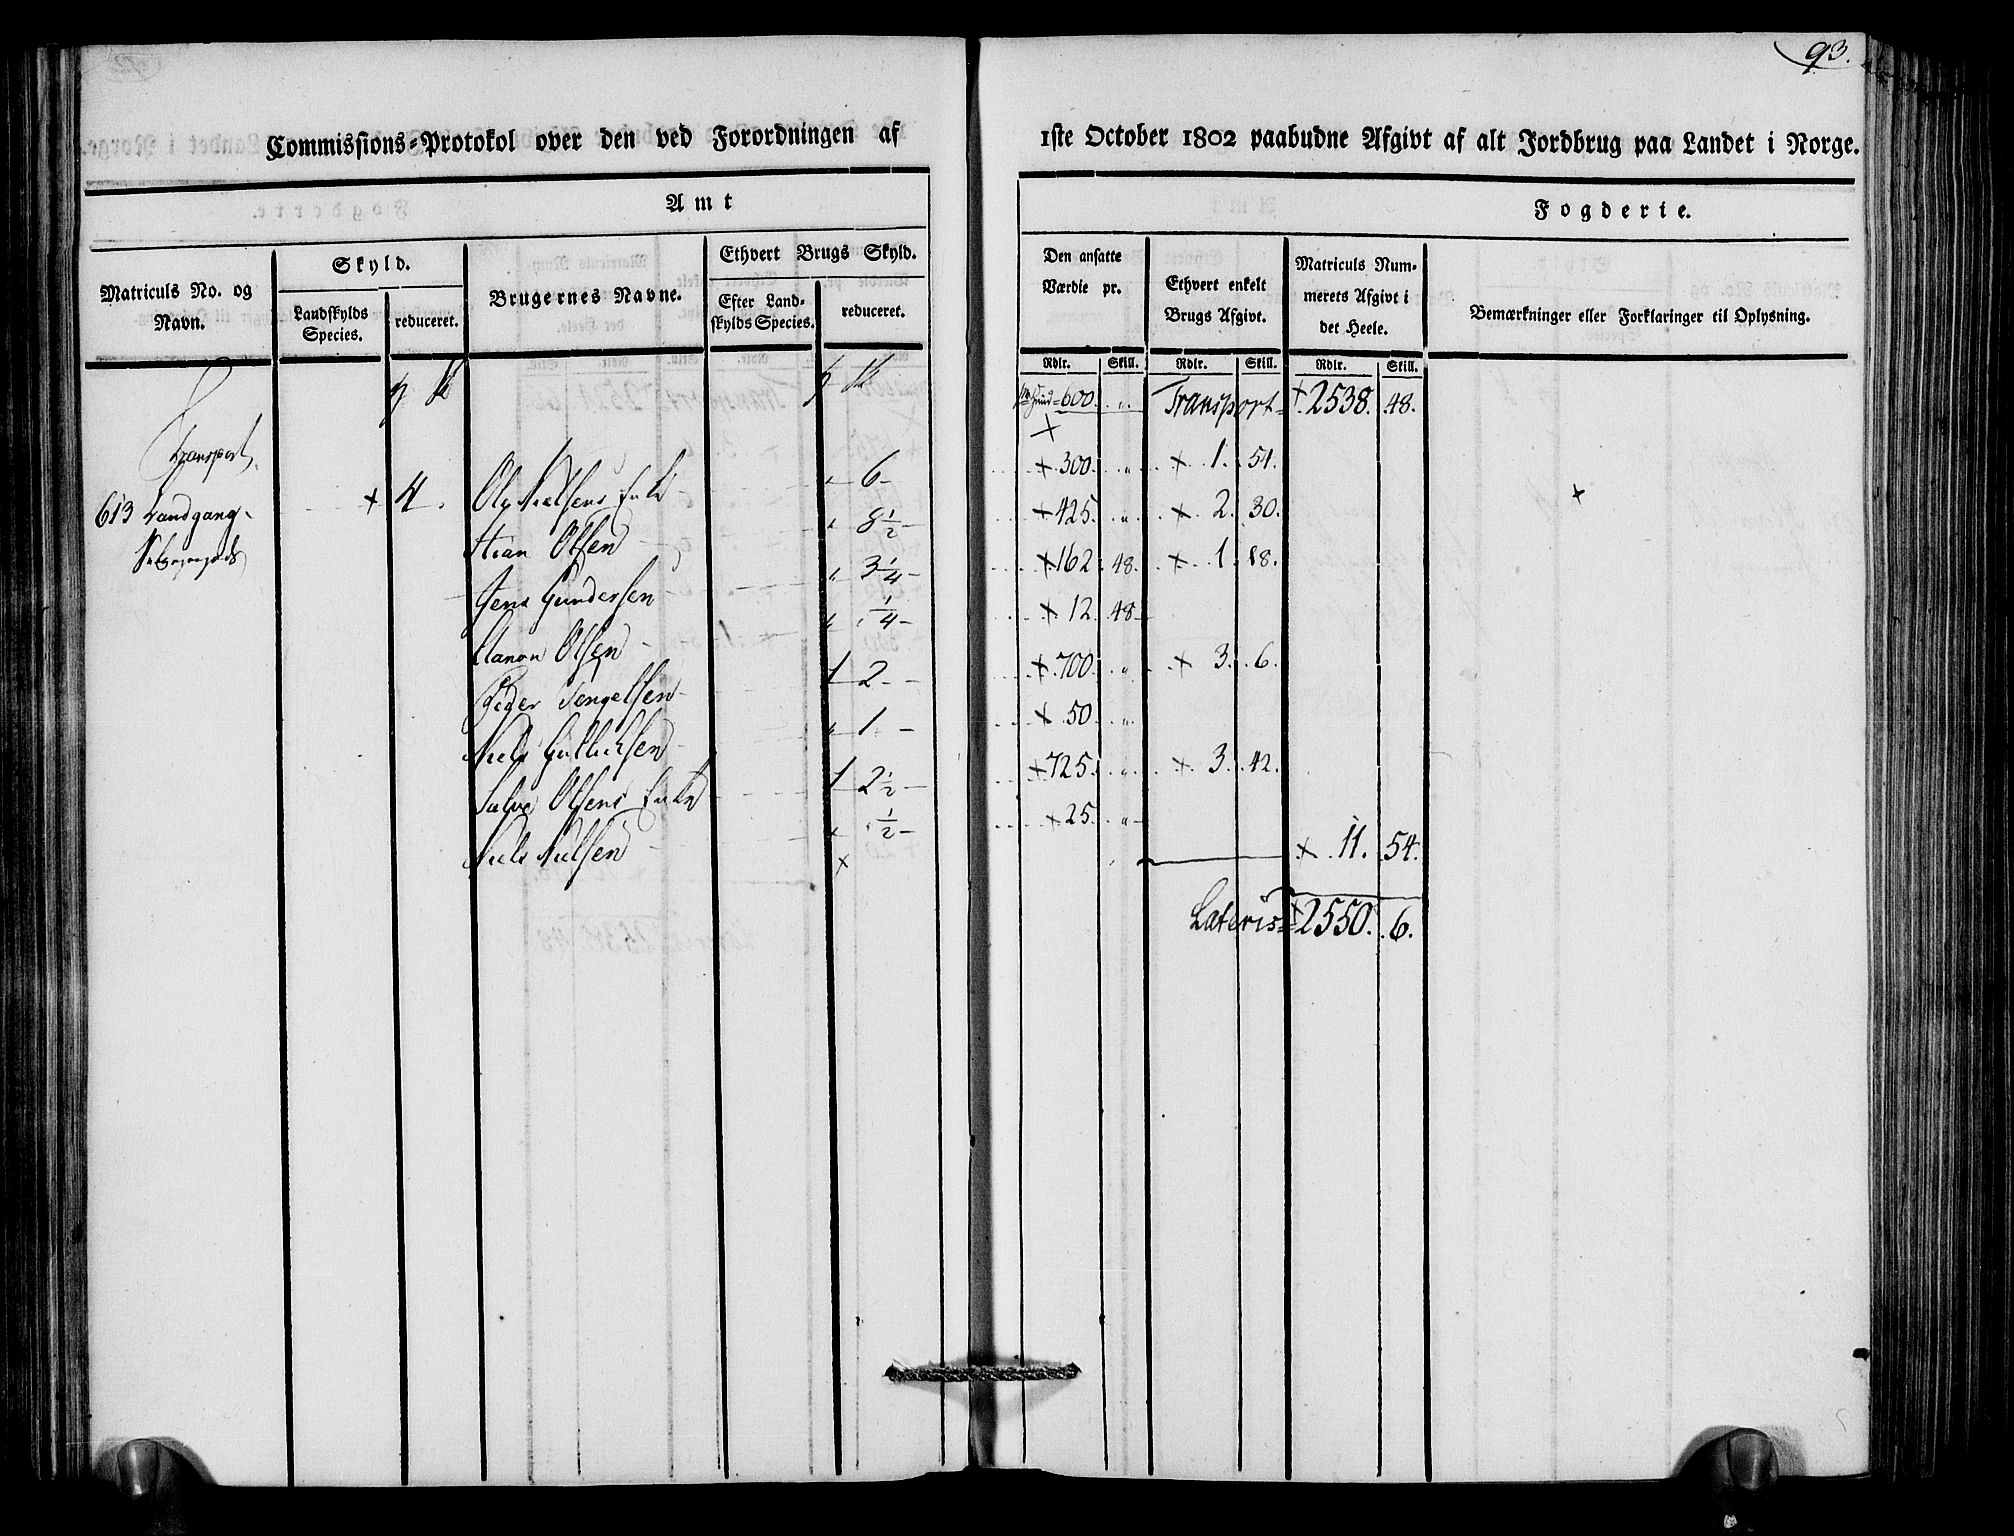 93.
Commissions-Protokol over den ved Forordningen af 1ste October 1802 paabudne Afgivt af alt Jordbrug paa Landet i Norge.
Amt
Fogderie.
Matriculs No. og Navn.
Skyld.
Landskylds Species.
reduceret.
Brugernes Navne.
Ethvert Brugs Skyld.
Efter Landskylds Species.
reduceret.
Den ansatte Værdie pr.
Ethvert enkelt Brugs Afgivt.
Matriculs Nummerets Afgivt i det Heele.
Bemærkninger eller Forklaringer til Oplysning.
Rdlr. Skill. Rdlr. Skill. Rdlr. Skill.
Transport
600 " Transport 2538. 48.
613 Landgang
4. Ole Nielsens Enke " 6 300. " 1. 51.
Stian Olsen " 8 1/2 425. " 2. 30.
Jens Gundersen " 3 1/4 162. 48. 1. 18.
Aanon Olsen " 1/4 12. 48
Peder Tengelsen 1 2 700. " 3. 6.
Niels Gulluksen " 1 50 "
Salve Olsens Enke 1 2 1/2 725. " 3. 42.
Niels Nielsen " 1/2 25. "
11. 54.
Lateris 2550. 6.